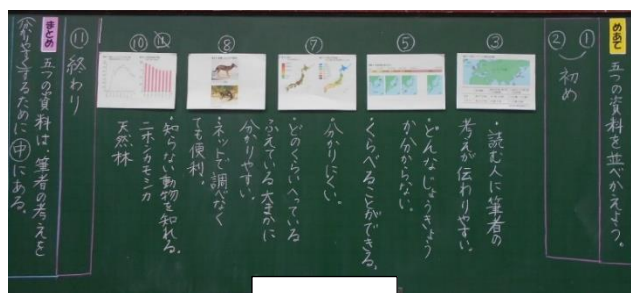 めあて
五つの資料を並べかえよう。
①
②
初め
③
・読む人に筆者の
考えが伝わりやすい。
⑤
・どんなじょうきょう
か分からない。
・くらべることができる。
⑦
・分かりにくい。
・どのくらいへっている
ふえている大まかに
分かりやすい。
⑧
・ネットで調べなく
ても便利。
・知らない動物を知れる。
⑩
ニホンカモシカ
天然林
⑪
終わり
まとめ
五つの資料は、筆者の考えを
分かりやすくするために中にある。